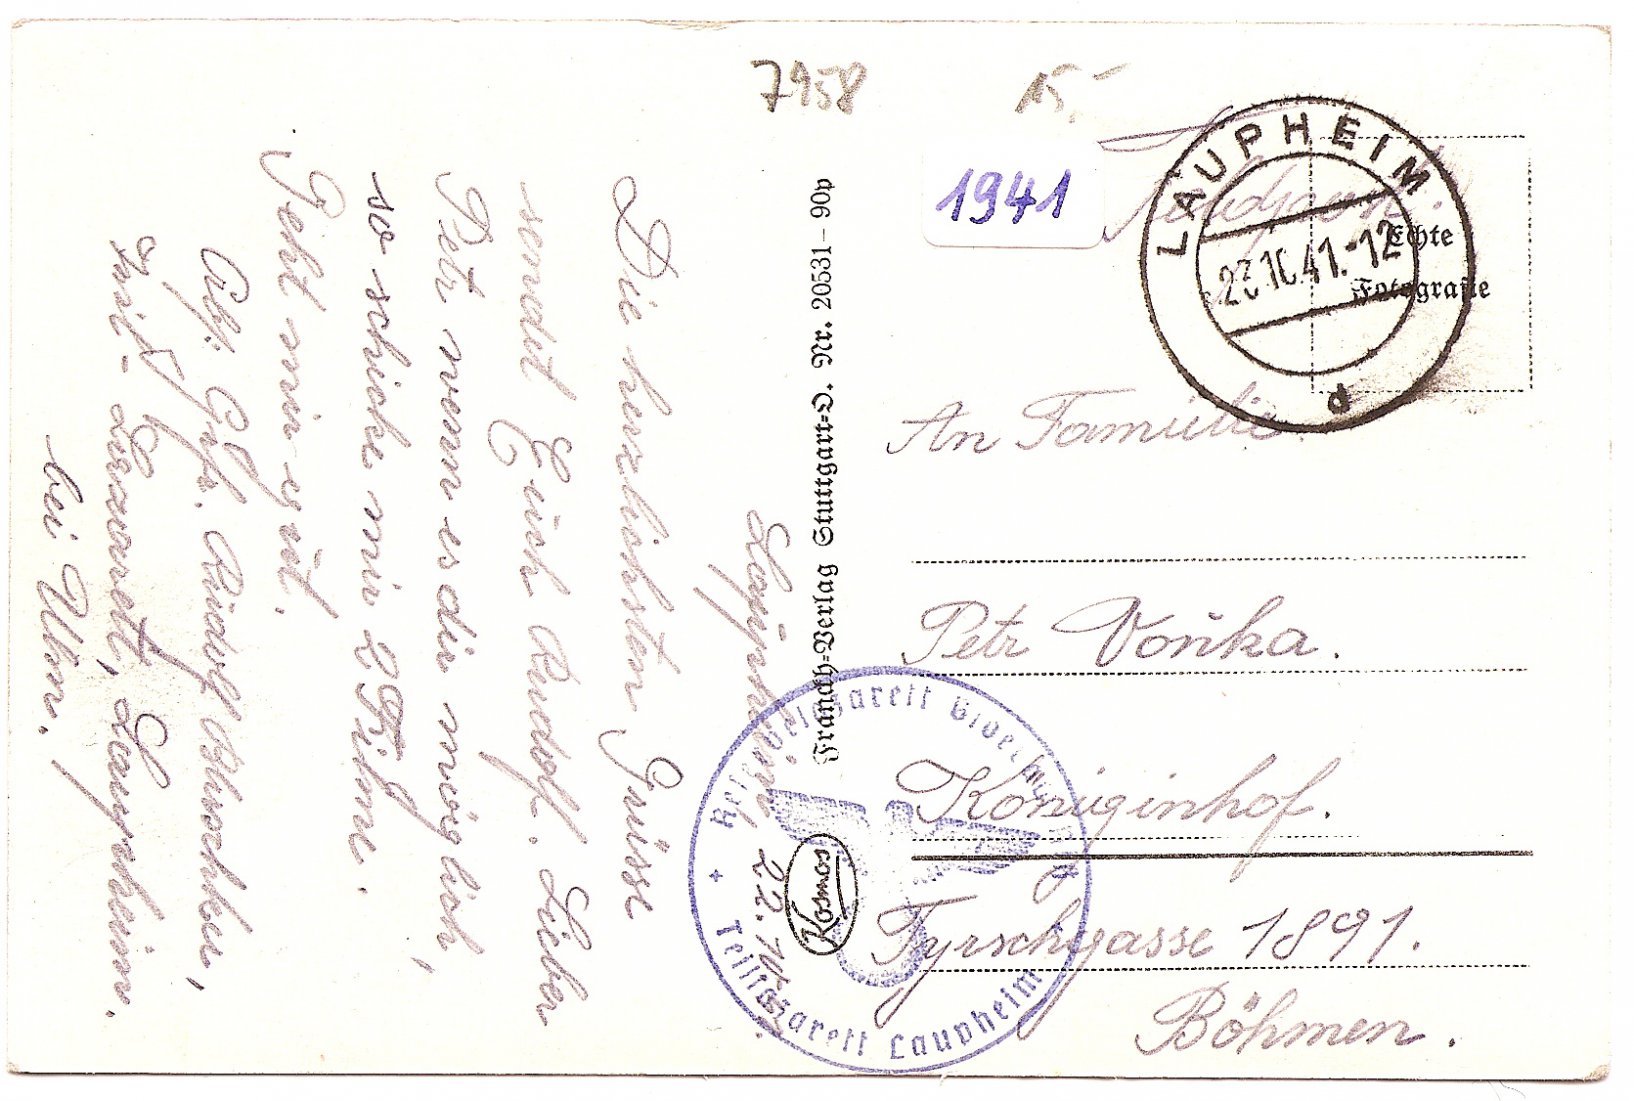 7958
15,-
1941
LAUPHEIM
23.10.41.-12
d
Echte
Fotografie
Feldpost.
An Familie.
Petr Vonka.
Königinhof.
Tyrschgasse 1891.
Böhmen.
Franckh-Verlag Stuttgart-O. Nr. 20531 - 90p
Kosmos
Reservelazarett
Teillazarett Laupheim
Laupheim 22.10.
Die herzlichsten Grüsse
sendet Euch Rudolf. Lieber
Petr wenn es dir möglich,
so schicke mir 2 Filme.
Geht mir gut.
Gfr. Rudolf
Lazarett, Laupheim.
bei Ulm.